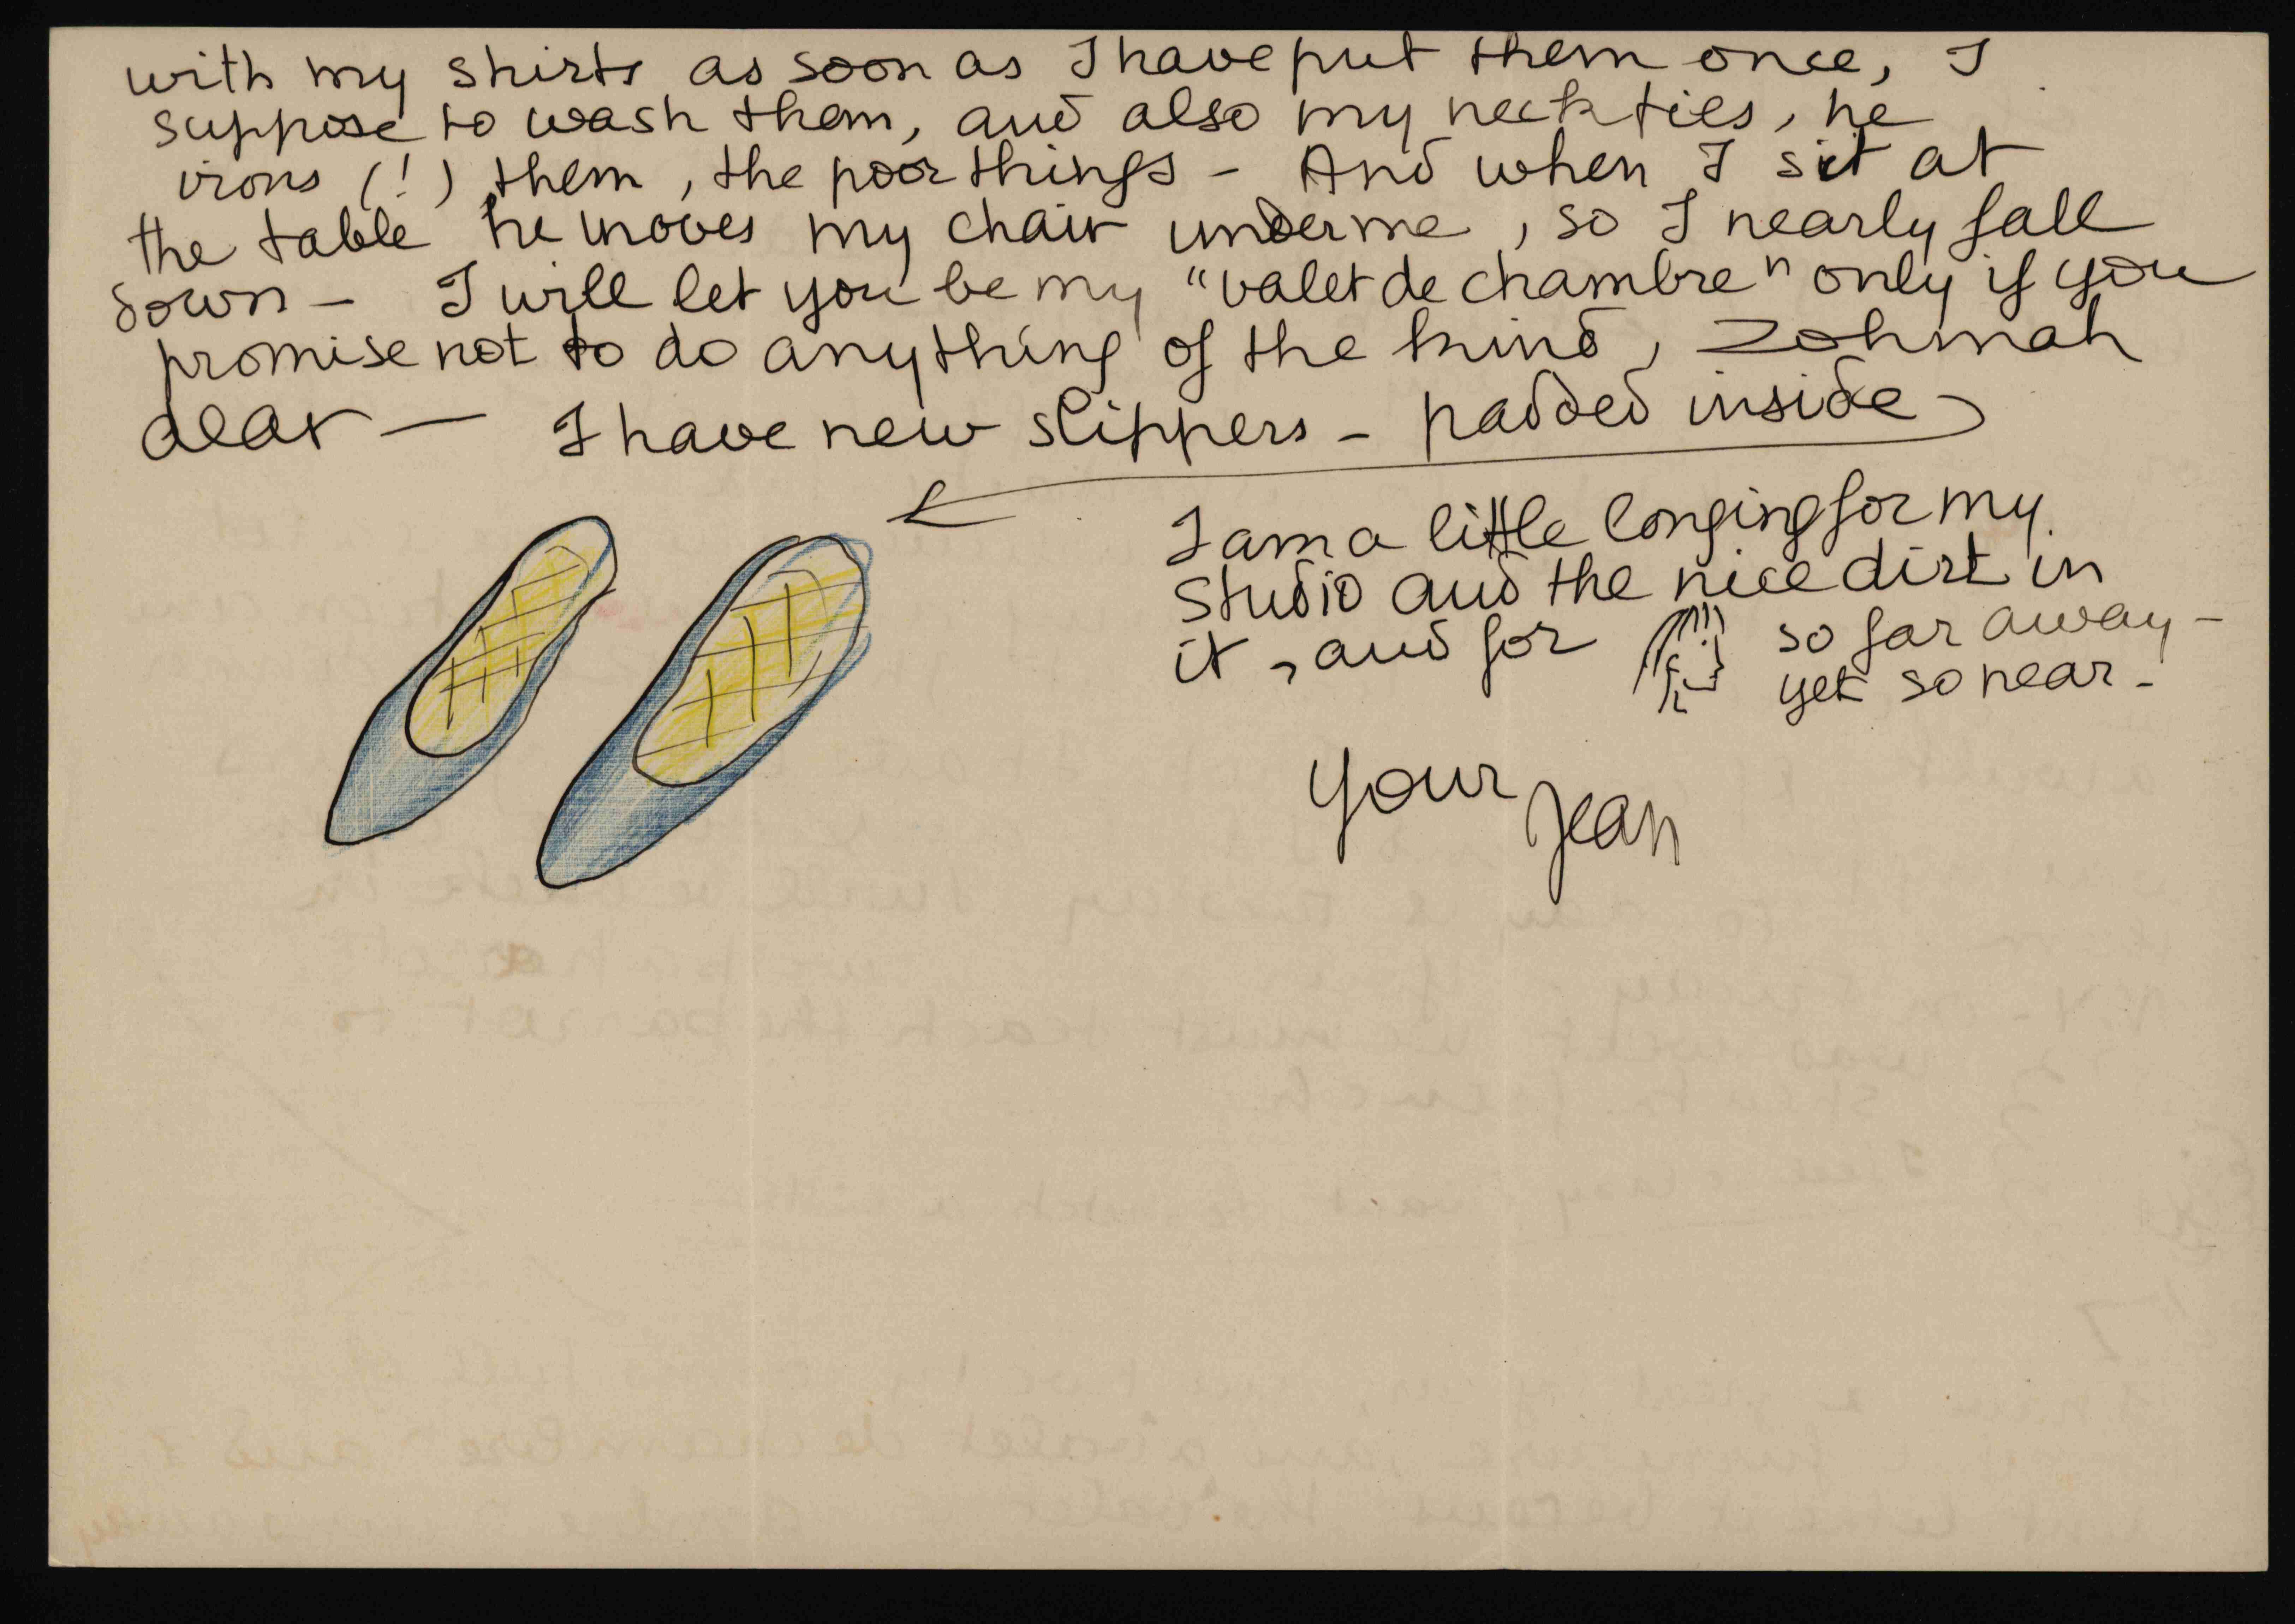 with my shirts as soon as I have put them once, I
suppose to wash them, and also my neckties, he
irons (!) them, the poor things - And when I sit at
the table he moves my chair under me, so I nearly fall
down - I will let you be my "valet de chambre" only if you
promise not to do anything of the kind, Zohmah
dear — I have new slippers - padded inside
I am a little longing for my
studio and the nice dirt in
it, and for so far away -
yet so near -
your Jean